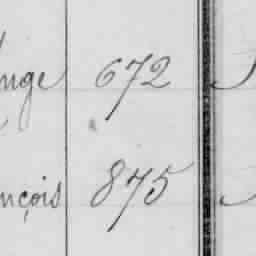 nge 672
nçois 875